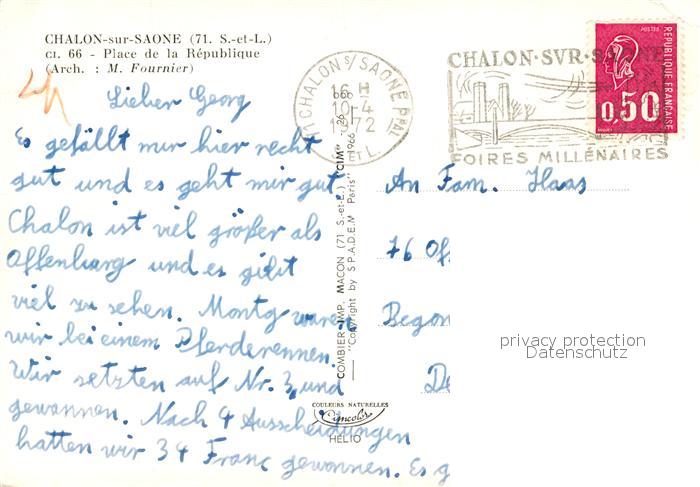 CHALON-sur-SAONE (71. S.-et-L.)
CI. 66 - Place de la République
(Arch. : M. Fournier)
Lieber Georg
Es gefällt mir hier recht
gut und es geht mir gut
Chalon ist viel größer als
Offenburg und es gibt
viel zu sehen. Montg waren
wir bei einem Pferderennen.
Wir setzten auf Nr. 3, und
gewannen. Nach 4 Ausscheidungen
hatten wir 34 Franc gewonnen. Es g
COMBIER IMP. MACON (71 S.-et-L.) "CIM"
"Copyright by S.P.A.D.E.M Paris" 1966
COULEURS NATURELLES
Cimcolor
HELIO
CHALON S/ SAONE PPAL
16 H
10-4
1972
S.ET L.
CHALON·SVR·SAONE
FOIRES MILLÉNAIRES
POSTES
REPUBLIQUE FRANÇAISE
0,50
An Fam. Haas
76 Off
Begon
De
privacy protection
Datenschutz